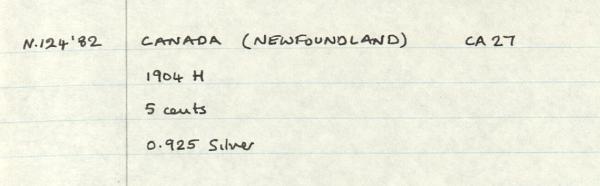 N.124'82 CANADA (NEWFOUNDLAND) CA 27
1904 H
5 cents
0.925 Silver